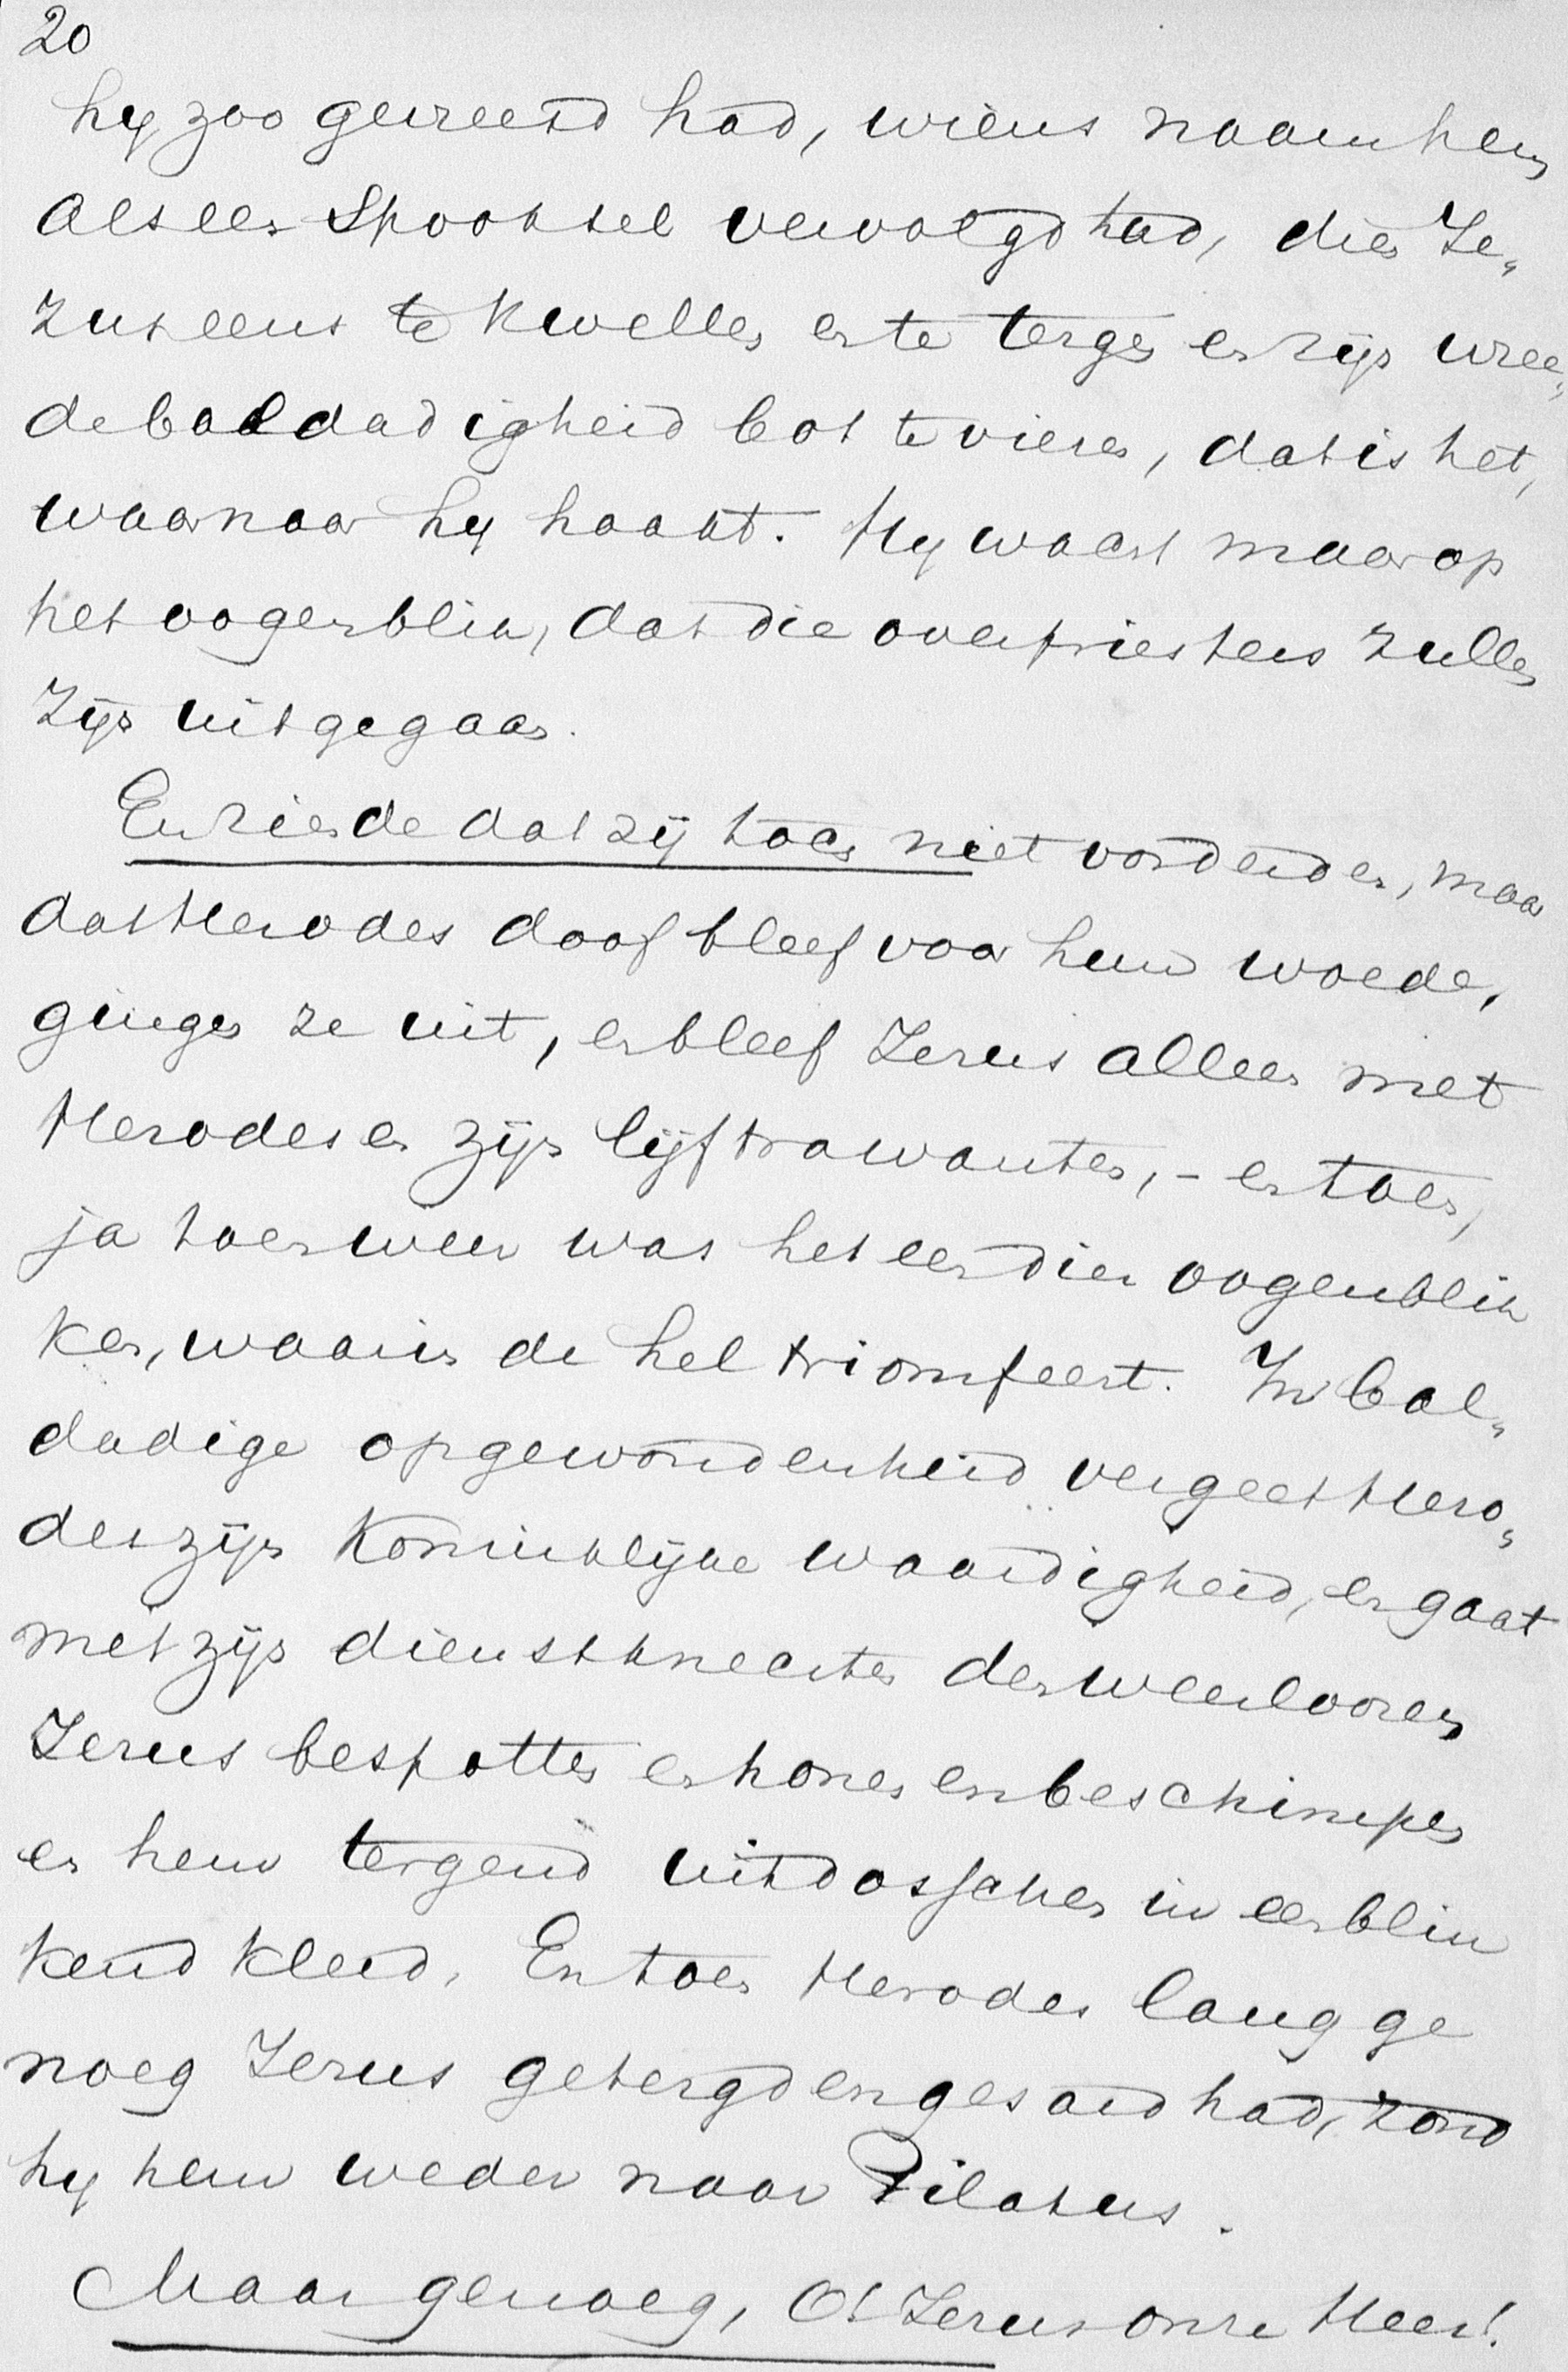 20
hij zoo gevreesd had, wiens naam hem
als een Spooksel vervolgd had, dien Je„
zus eens te kwellen en te tergen en zijn wree„
de baldadigheid bot te vieren, dat is het,
waarnaar hij haakt. Hij wacht maar op
het oogenblik, dat die overpriesters zullen
zijn uitgegaan.
En ziende dat zij toch niet vorderden, maar
dat Herodes doof bleef voor hun woede,
gingen ze uit, en bleef Jezus alleen met
Herodes en zijn lijftrawanten, - en toen,
ja toen weer was het een dier oogenblik
ken, waarin de hel triomfeert. In bal„
dadige opgewondenheid vergeet Hero„
des zijn Koninklijke waardigheid, en gaat
met zijn dienstknechten den weerloozen
Jezus bespotten en honen en beschimpen
en hem tergend uitdosschen in een blin
kend kleed. En toen Herodes lang ge
noeg Jezus getergd en gesard had, zond
hij hem weder naar Pilatus.
Maar genoeg, O! Jezus onze Heer!